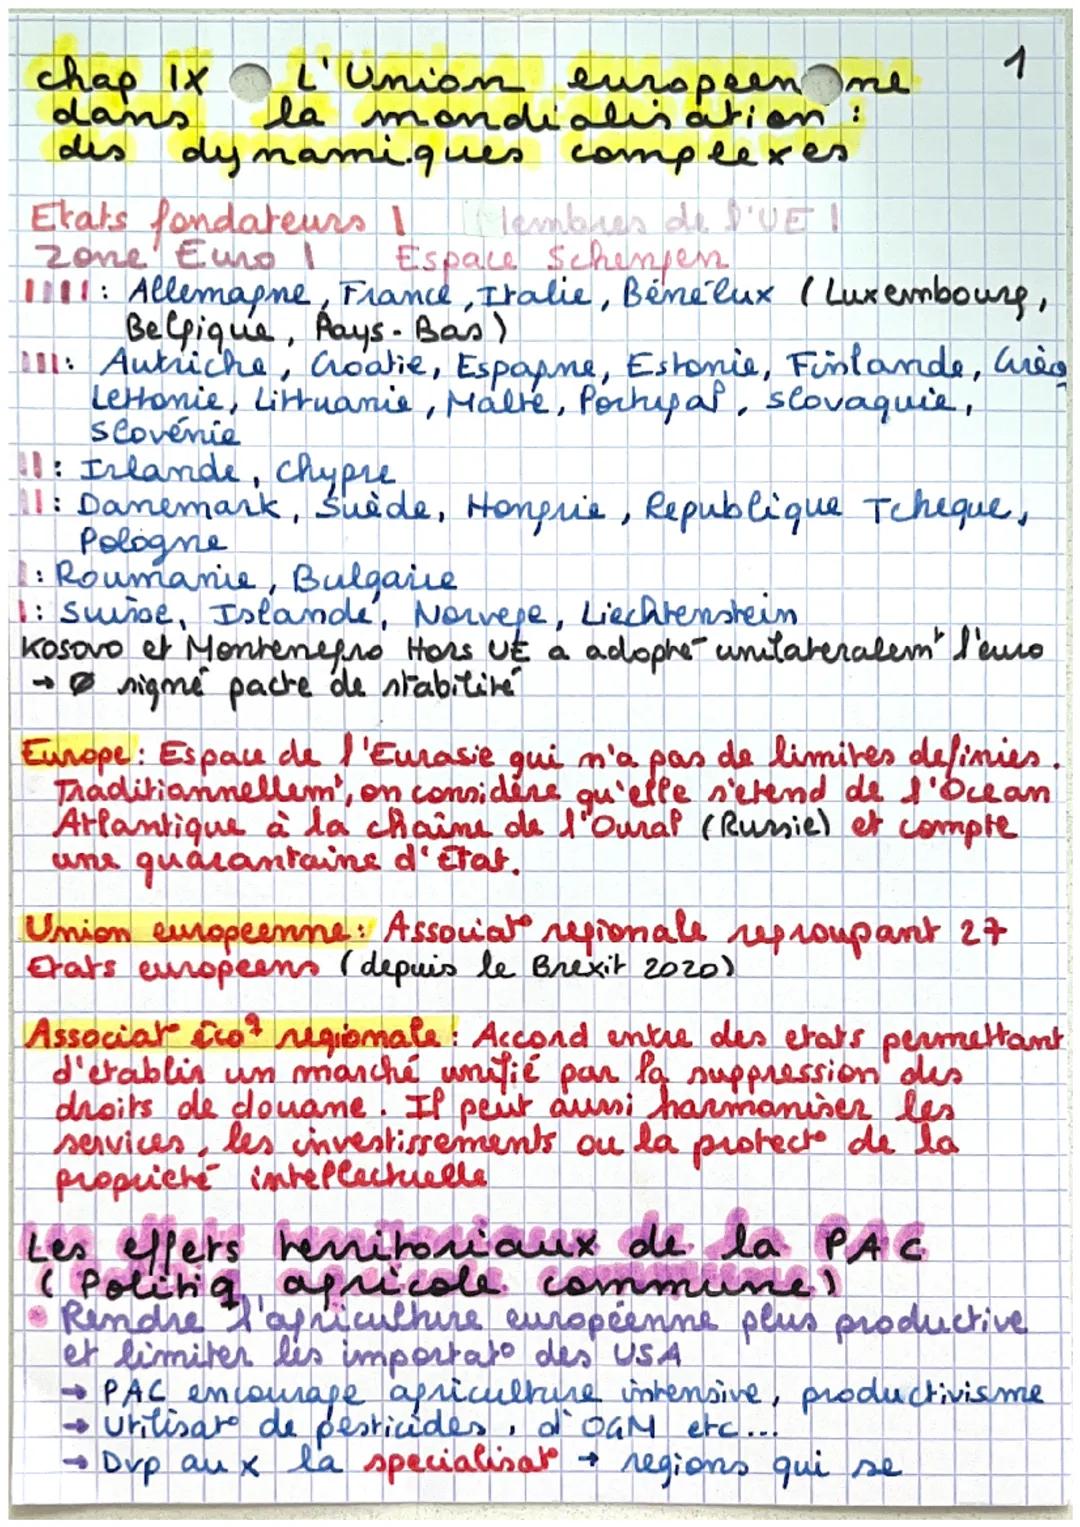 1
chap IX L'Union européenne
dans la mondialisation :
des dynamiques complexes
Etats fondateurs | Membres de l'UE |
Zone Euro | Espace Schengen
||||: Allemagne, France, Italie, Bénélux (Luxembourg,
Belgique, Pays-Bas)
|||: Autriche, Croatie, Espagne, Estonie, Finlande, Grèc
Lettonie, Littuanie, Malte, Portugal, Slovaquie,
Slovénie
||: Irlande, Chypre
||: Danemark, Suède, Hongrie, Republique Tcheque,
Pologne
|: Roumanie, Bulgarie
|: Suisse, Islande, Norvege, Liechtenstein
Kosovo et Montenegro Hors UE a adopté unilateralemt l'euro
→ Ø signé pacte de stabilité
Europe : Espace de l'Eurasie qui n'a pas de limites definies.
Traditionnellemt, on considère qu'elle s'étend de l'Océan
Atlantique à la chaîne de l'Oural (Russie) et compte
une quarantaine d'Etat.
Union europeenne : Associato regionale regroupant 27
Etats européens (depuis le Brexit 2020)
Associato éco? regionale : Accord entre des etats permettant
d'établir un marché unifié par la suppression des
droits de douane. Il peut aussi harmoniser les
services, les investissements ou la protecto de la
propriété intellectuelle
Les effets territoriaux de la PAC
(Politiq agricole commune)
• Rendre l'agriculture européenne plus productive
et limiter les importato des USA
→ PAC encourage agriculture intensive, productivisme
→ Utilisato de pesticides, d'OGM etc...
→ Dvp aux la specialisato → regions qui se